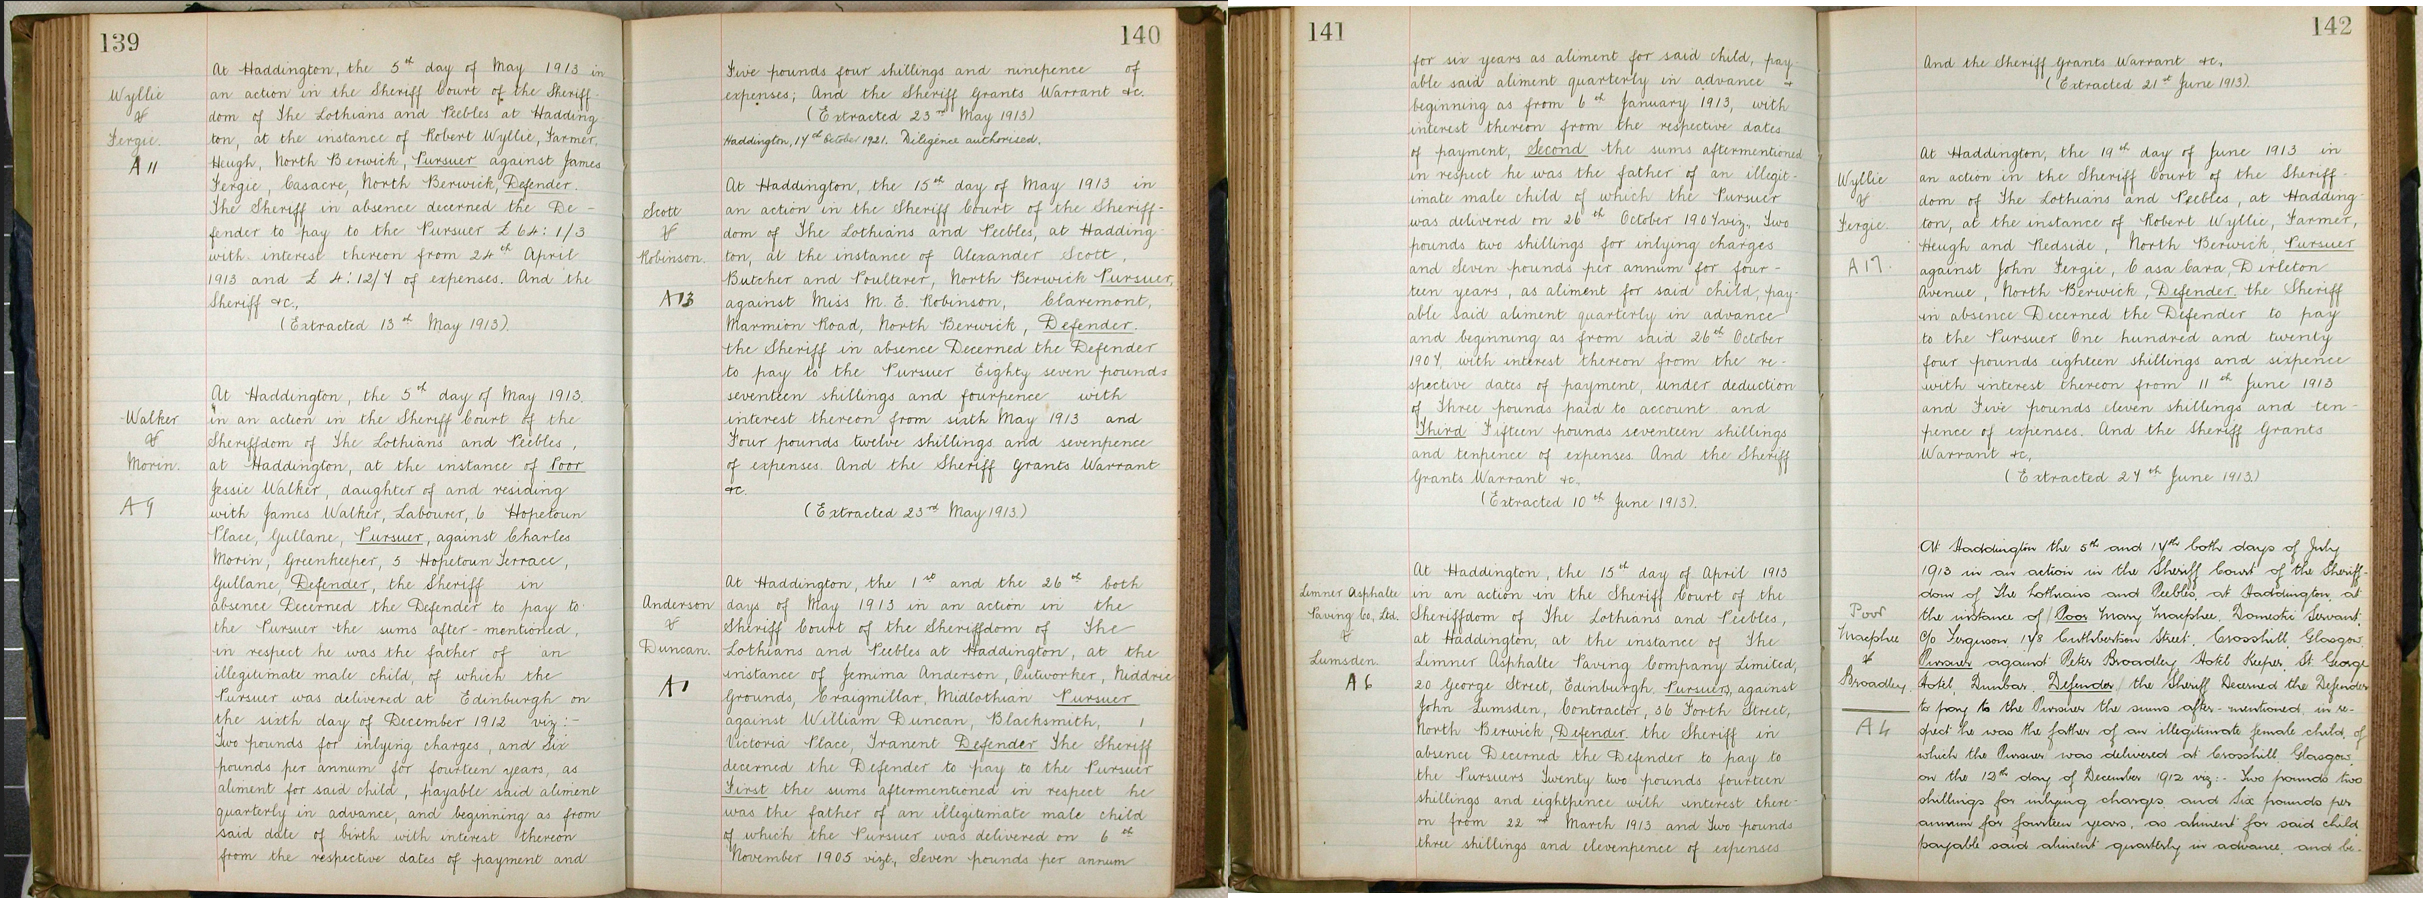 139
Wyllie
v
Fergie.
A 11
At Haddington, the 5th day of May 1913 in
an action in the Sheriff Court of the Sheriff-
dom of The Lothians and Peebles at Hadding-
ton, at the instance of Robert Wyllie, Farmer,
Heugh, North Berwick, Pursuer against James
Fergie, Casacre, North Berwick, Defender.
The Sheriff in absence decerned the De-
fender to pay to the Pursuer £64:1/3
with interest thereon from 24th April
1913 and £4:12/7 of expenses. And the
Sheriff &c.,
(Extracted 13th May 1913).
Walker
v
Morin.
A 9
At Haddington, the 5th day of May 1913.
in an action in the Sheriff Court of the
Sheriffdom of The Lothians and Peebles,
at Haddington, at the instance of Poor
Jessie Walker, daughter of and residing
with James Walker, Labourer, 6 Hopetoun
Place, Gullane, Pursuer, against Charles
Morin, Greenkeeper, 5 Hopetoun Terrace,
Gullane, Defender, the Sheriff in
absence Decerned the Defender to pay to
the Pursuer the sums after-mentioned,
in respect he was the father of an
illegitimate male child, of which the
Pursuer was delivered at Edinburgh on
the sixth day of December 1912 viz:-
Two pounds for inlying charges, and Six
pounds per annum for fourteen years, as
aliment for said child, payable said aliment
quarterly in advance, and beginning as from
said date of birth with interest thereon
from the respective dates of payment and
140
Five pounds four shillings and ninepence of
expenses; And the Sheriff Grants Warrant &c.
(Extracted 23rd May 1913)
Haddington, 17th October 1921. Diligence authorised.
Scott
v
Robinson.
A 13
At Haddington, the 15th day of May 1913 in
an action in the Sheriff Court of the Sheriff-
dom of The Lothians and Peebles, at Hadding-
ton, at the instance of Alexander Scott,
Butcher and Poulterer, North Berwick Pursuer,
against Miss M. E. Robinson, Claremont,
Marmion Road, North Berwick, Defender.
the Sheriff in absence Decerned the Defender
to pay to the Pursuer Eighty seven pounds
seventeen shillings and fourpence with
interest thereon from sixth May 1913 and
Four pounds twelve shillings and sevenpence
of expenses. And the Sheriff Grants Warrant
&c.
(Extracted 23rd May 1913.)
Anderson
v
Duncan.
A 1
At Haddington, the 1st and the 26th both
days of May 1913 in an action in the
Sheriff Court of the Sheriffdom of The
Lothians and Peebles at Haddington, at the
instance of Jemima Anderson, Outworker, Niddrie
Grounds, Craigmillar, Midlothian Pursuer
against William Duncan, Blacksmith, 1
Victoria Place, Tranent Defender The Sheriff
decerned the Defender to pay to the Pursuer
First the sums aftermentioned in respect he
was the father of an illegitimate male child
of which the Pursuer was delivered on 6th
November 1905 vizt, Seven pounds per annum
141
for six years as aliment for said child, pay-
able said aliment quarterly in advance &
beginning as from 6th January 1913, with
interest thereon from the respective dates
of payment, Second the sums aftermentioned
in respect he was the father of an illegit-
imate male child of which the Pursuer
was delivered on 26th October 1907 viz, Two
pounds two shillings for inlying charges
and Seven pounds per annum for four-
teen years, as aliment for said child, pay-
able said aliment quarterly in advance
and beginning as from said 26th October
1907, with interest thereon from the re-
spective dates of payment, under deduction
of Three pounds paid to account and
Third Fifteen pounds seventeen shillings
and tenpence of expenses. And the Sheriff
Grants Warrant &c.
(Extracted 10th June 1913).
Limner Asphalte
Paving Co, Ltd.
v
Lumsden.
A 6
At Haddington, the 15th day of April 1913
in an action in the Sheriff Court of the
Sheriffdom of The Lothians and Peebles,
at Haddington, at the instance of The
Limner Asphalte Paving Company Limited,
20 George Street, Edinburgh, Pursuers, against
John Lumsden, Contractor, 36 Forth Street,
North Berwick, Defender. the Sheriff in
absence Decerned the Defender to pay to
the Pursuers Twenty two pounds fourteen
shillings and eightpence with interest there-
on from 22nd March 1913 and Two pounds
three shillings and elevenpence of expenses
142
And the Sheriff Grants Warrant &c,
(Extracted 21st June 1913).
Wyllie
v
Fergie.
A 17.
At Haddington, the 19th day of June 1913 in
an action in the Sheriff Court of the Sheriff-
dom of The Lothians and Peebles, at Hadding-
ton, at the instance of Robert Wyllie, Farmer,
Heugh and Redside, North Berwick, Pursuer
against John Fergie, Casa Cara, Dirleton
Avenue, North Berwick, Defender. the Sheriff
in absence Decerned the Defender to pay
to the Pursuer One hundred and twenty
four pounds eighteen shillings and sixpence
with interest thereon from 11th June 1913
and Five pounds eleven shillings and ten-
pence of expenses. And the Sheriff Grants
Warrant &c,
(Extracted 27th June 1913.)
Poor
Macphee
v
Broadley.
A 4
At Haddington the 5th and 17th both days of July
1913 in an action in the Sheriff Court of the Sheriff-
dom of The Lothians and Peebles, at Haddington, at
the instance of Poor Mary Macphee, Domestic Servant,
c/o Ferguson, 178 Cuthbertson Street, Crosshill, Glasgow,
Pursuer against Peter Broadley, Hotel Keeper, St. George
Hotel, Dunbar, Defender, the Sheriff Decerned the Defender
to pay to the Pursuer the sums after-mentioned, in re-
spect he was the father of an illegitimate female child, of
which the Pursuer was delivered at Crosshill, Glasgow,
on the 12th day of December 1912 viz:- Two pounds two
shillings for inlying charges, and Six pounds per
annum for fourteen years, as aliment for said child,
payable said aliment quarterly in advance, and be-